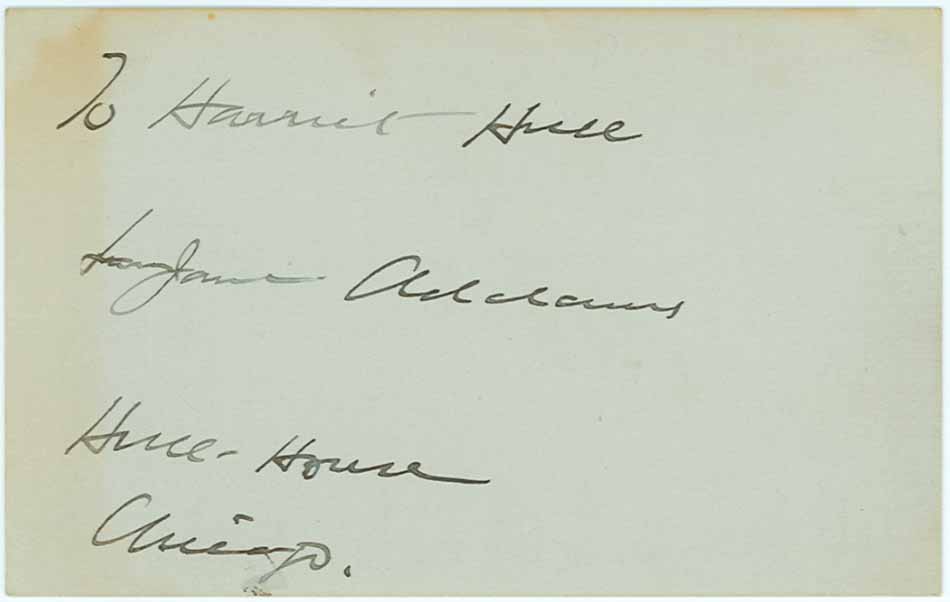 To Harriet Hull
from Jane Addams
Hull-House
Chicago.